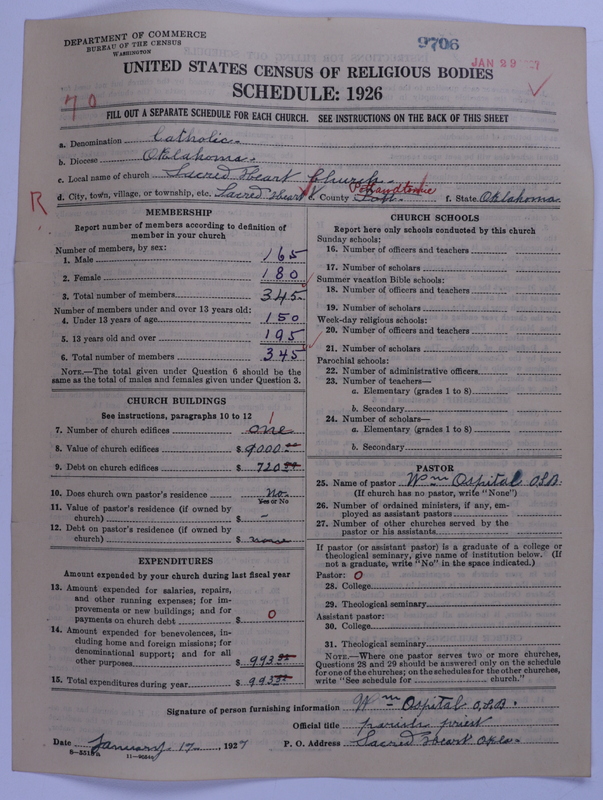 DEPARTMENT OF COMMERCE
BUREAU OF THE CENSUS
WASHINGTON
9706
JAN 29
UNITED STATES CENSUS OF RELIGIOUS BODIES
SCHEDULE: 1926
70
FILL OUT A SEPARATE SCHEDULE FOR EACH CHURCH. SEE INSTRUCTIONS ON THE BACK OF THIS SHEET
a. Denomination Catholic
b. Diocese Oklahoma
c. Local name of church Sacred Heart Church
Pottawatomie
R
d. City, town, village, or township, etc. Sacred Heart e. County Pott. f. State Oklahoma
MEMBERSHIP
Report number of members according to definition of
member in your church
Number of members, by sex:
1. Male 165
2. Female 180
3. Total number of members 345
Number of members under and over 13 years old:
4. Under 13 years of age 150
5. 13 years old and over 195
6. Total number of members 345
NOTE.—The total given under Question 6 should be the
same as the total of males and females given under Question 3.
CHURCH BUILDINGS
See instructions, paragraphs 10 to 12
1
7. Number of church edifices one
8. Value of church edifices $ 9000
9. Debt on church edifices $ 720
10. Does church own pastor's residence No
Yes or No
11. Value of pastor's residence (if owned by
church) $ –
12. Debt on pastor's residence (if owned by
church) $ none
EXPENDITURES
Amount expended by your church during last fiscal year
13. Amount expended for salaries, repairs,
and other running expenses; for im-
provements or new buildings; and for
payments on church debt $ 0
14. Amount expended for benevolences, in-
cluding home and foreign missions; for
denominational support; and for all
other purposes $ 993
15. Total expenditures during year $ 993
CHURCH SCHOOLS
Report here only schools conducted by this church
Sunday schools:
16. Number of officers and teachers
17. Number of scholars
Summer vacation Bible schools:
18. Number of officers and teachers
19. Number of scholars
Week-day religious schools:
20. Number of officers and teachers
21. Number of scholars
Parochial schools:
22. Number of administrative officers
23. Number of teachers—
a. Elementary (grades 1 to 8)
b. Secondary
24. Number of scholars—
a. Elementary (grades 1 to 8)
b. Secondary
PASTOR
25. Name of pastor Wm Ospital O.S.B.
(If church has no pastor, write "None")
26. Number of ordained ministers, if any, em-
ployed as assistant pastors
27. Number of other churches served by the
pastor or his assistants
If pastor (or assistant pastor) is a graduate of a college or
theological seminary, give name of institution below. (If
not a graduate, write "No" in the space indicated.)
Pastor: 0
28. College
29. Theological seminary
Assistant pastor:
30. College
31. Theological seminary
NOTE.—Where one pastor serves two or more churches,
Questions 28 and 29 should be answered only on the schedule
for one of the churches; on the schedules for the other churches,
write "See schedule for church."
Signature of person furnishing information Wm Ospital O.S.B.
Official title parish priest
Date January 17, 1927 P. O. Address Sacred Heart Okla.